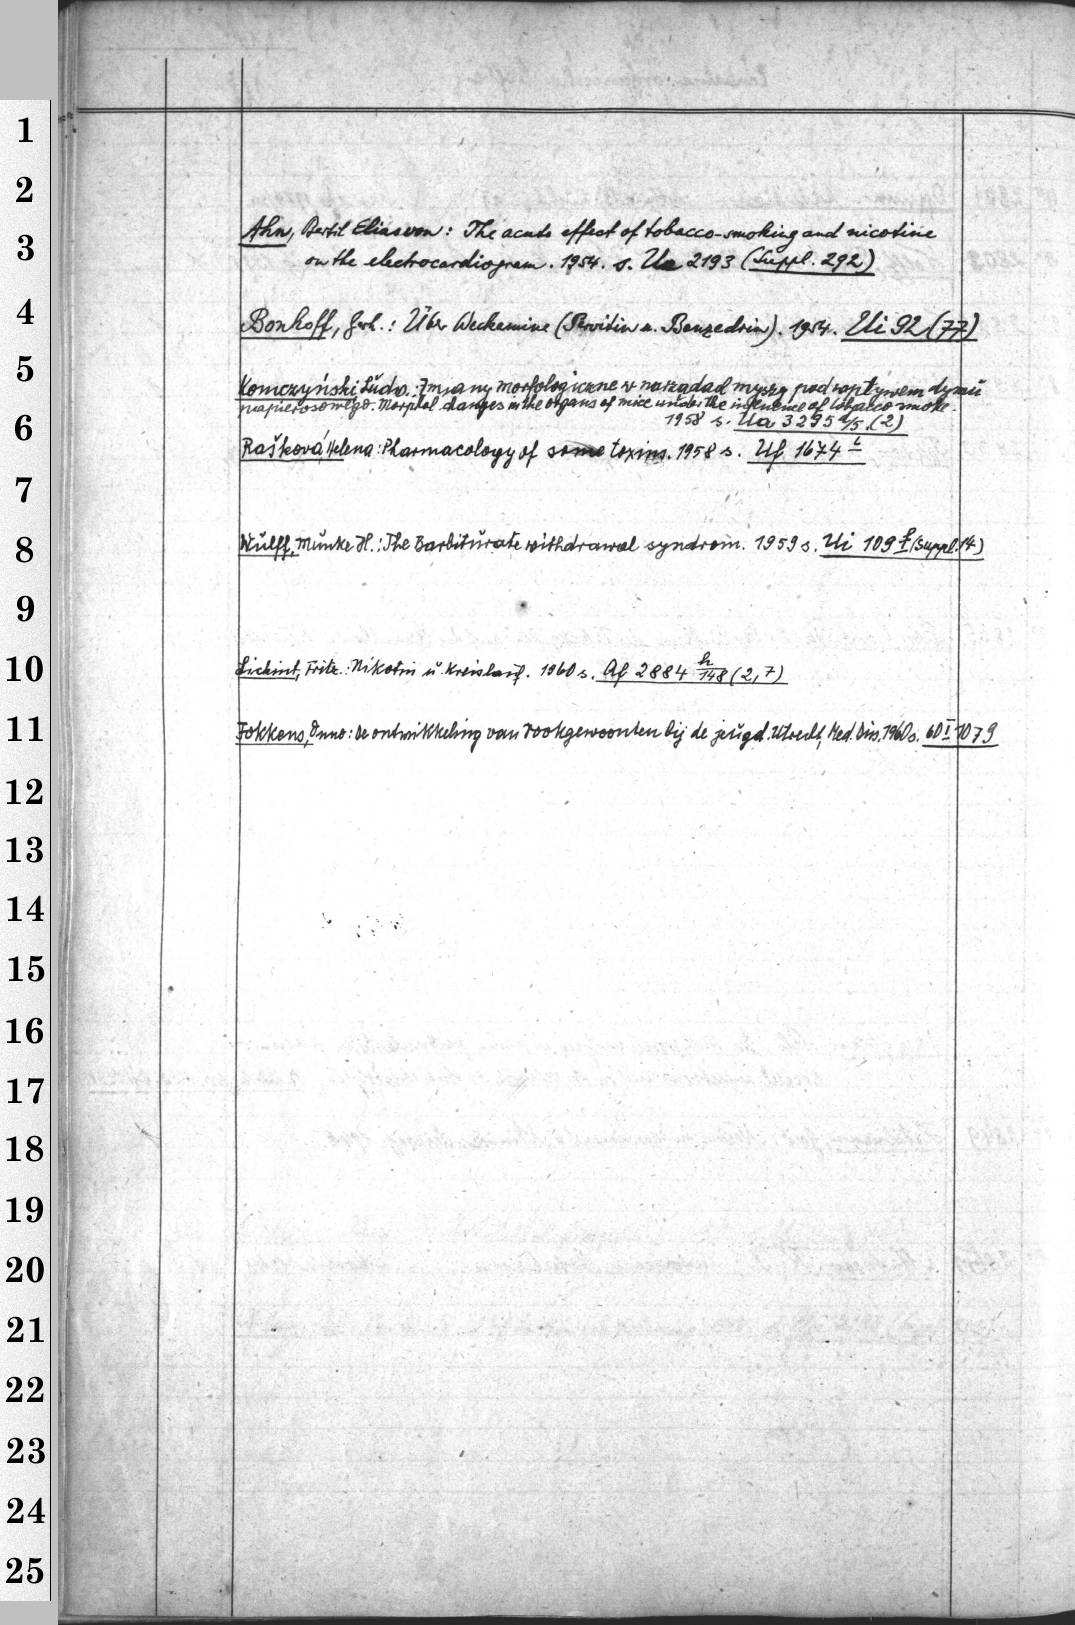 1
2
Ahn, Bertil Elias von: The acute effect of tobacco-smoking and nicotine
3
on the electrocardiogram. 1954. s. Ua 2193 (Suppl. 292)
4
Bonhoff, Gerh.: Über Weckamine (Pervitin u. Benzedrin). 1954. Ui 92 (77)
5
Komczyński Ludw.: Zmiany morfologiczne w narządad myszy pod wpływem dymu
papierosowego. Morphol. changes in the organs of mice under the influence of tobacco smoke.
6
1958 s. Ua 3295 a/5.(2)
Rašková, Helena: Pharmacology of some toxins. 1958 s. Uf 1674 i
7
8
Wulff, Munke H.: The Barbiturate withdrawal syndrom. 1959 s. Ui 109 f (Suppl. 14)
9
10
Lickint, Fritz.: Nikotin u. Kreislauf. 1960 s. Af 2884 h/148 (2,7)
11
Fokkens, Onno: De ontwikkeling van rookgewoonten bij de jeugd. Utrecht, Med. Diss. 1960 s. 60 I 1079
12
13
14
15
16
17
18
19
20
21
22
23
24
25